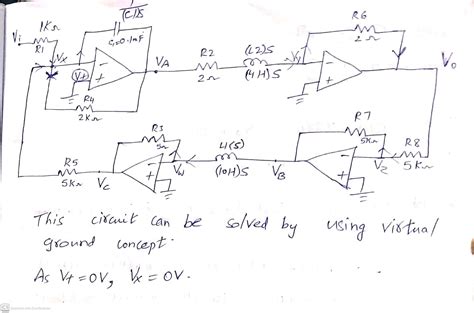 1/(C1)S
1KΩ
Vi
R1
C1=0.1mF
Vx
V+
R4
2KΩ
VA
R2
2Ω
(L2)S
(4H)S
Vy
R6
2Ω
Vo
R3
5Ω
L1(S)
(10H)S
Vw
R7
5KΩ
R8
5KΩ
VZ
R5
5KΩ
VC
VB
This circuit can be solved by using virtual
ground concept.
As V+ = 0V, Vx = 0V.